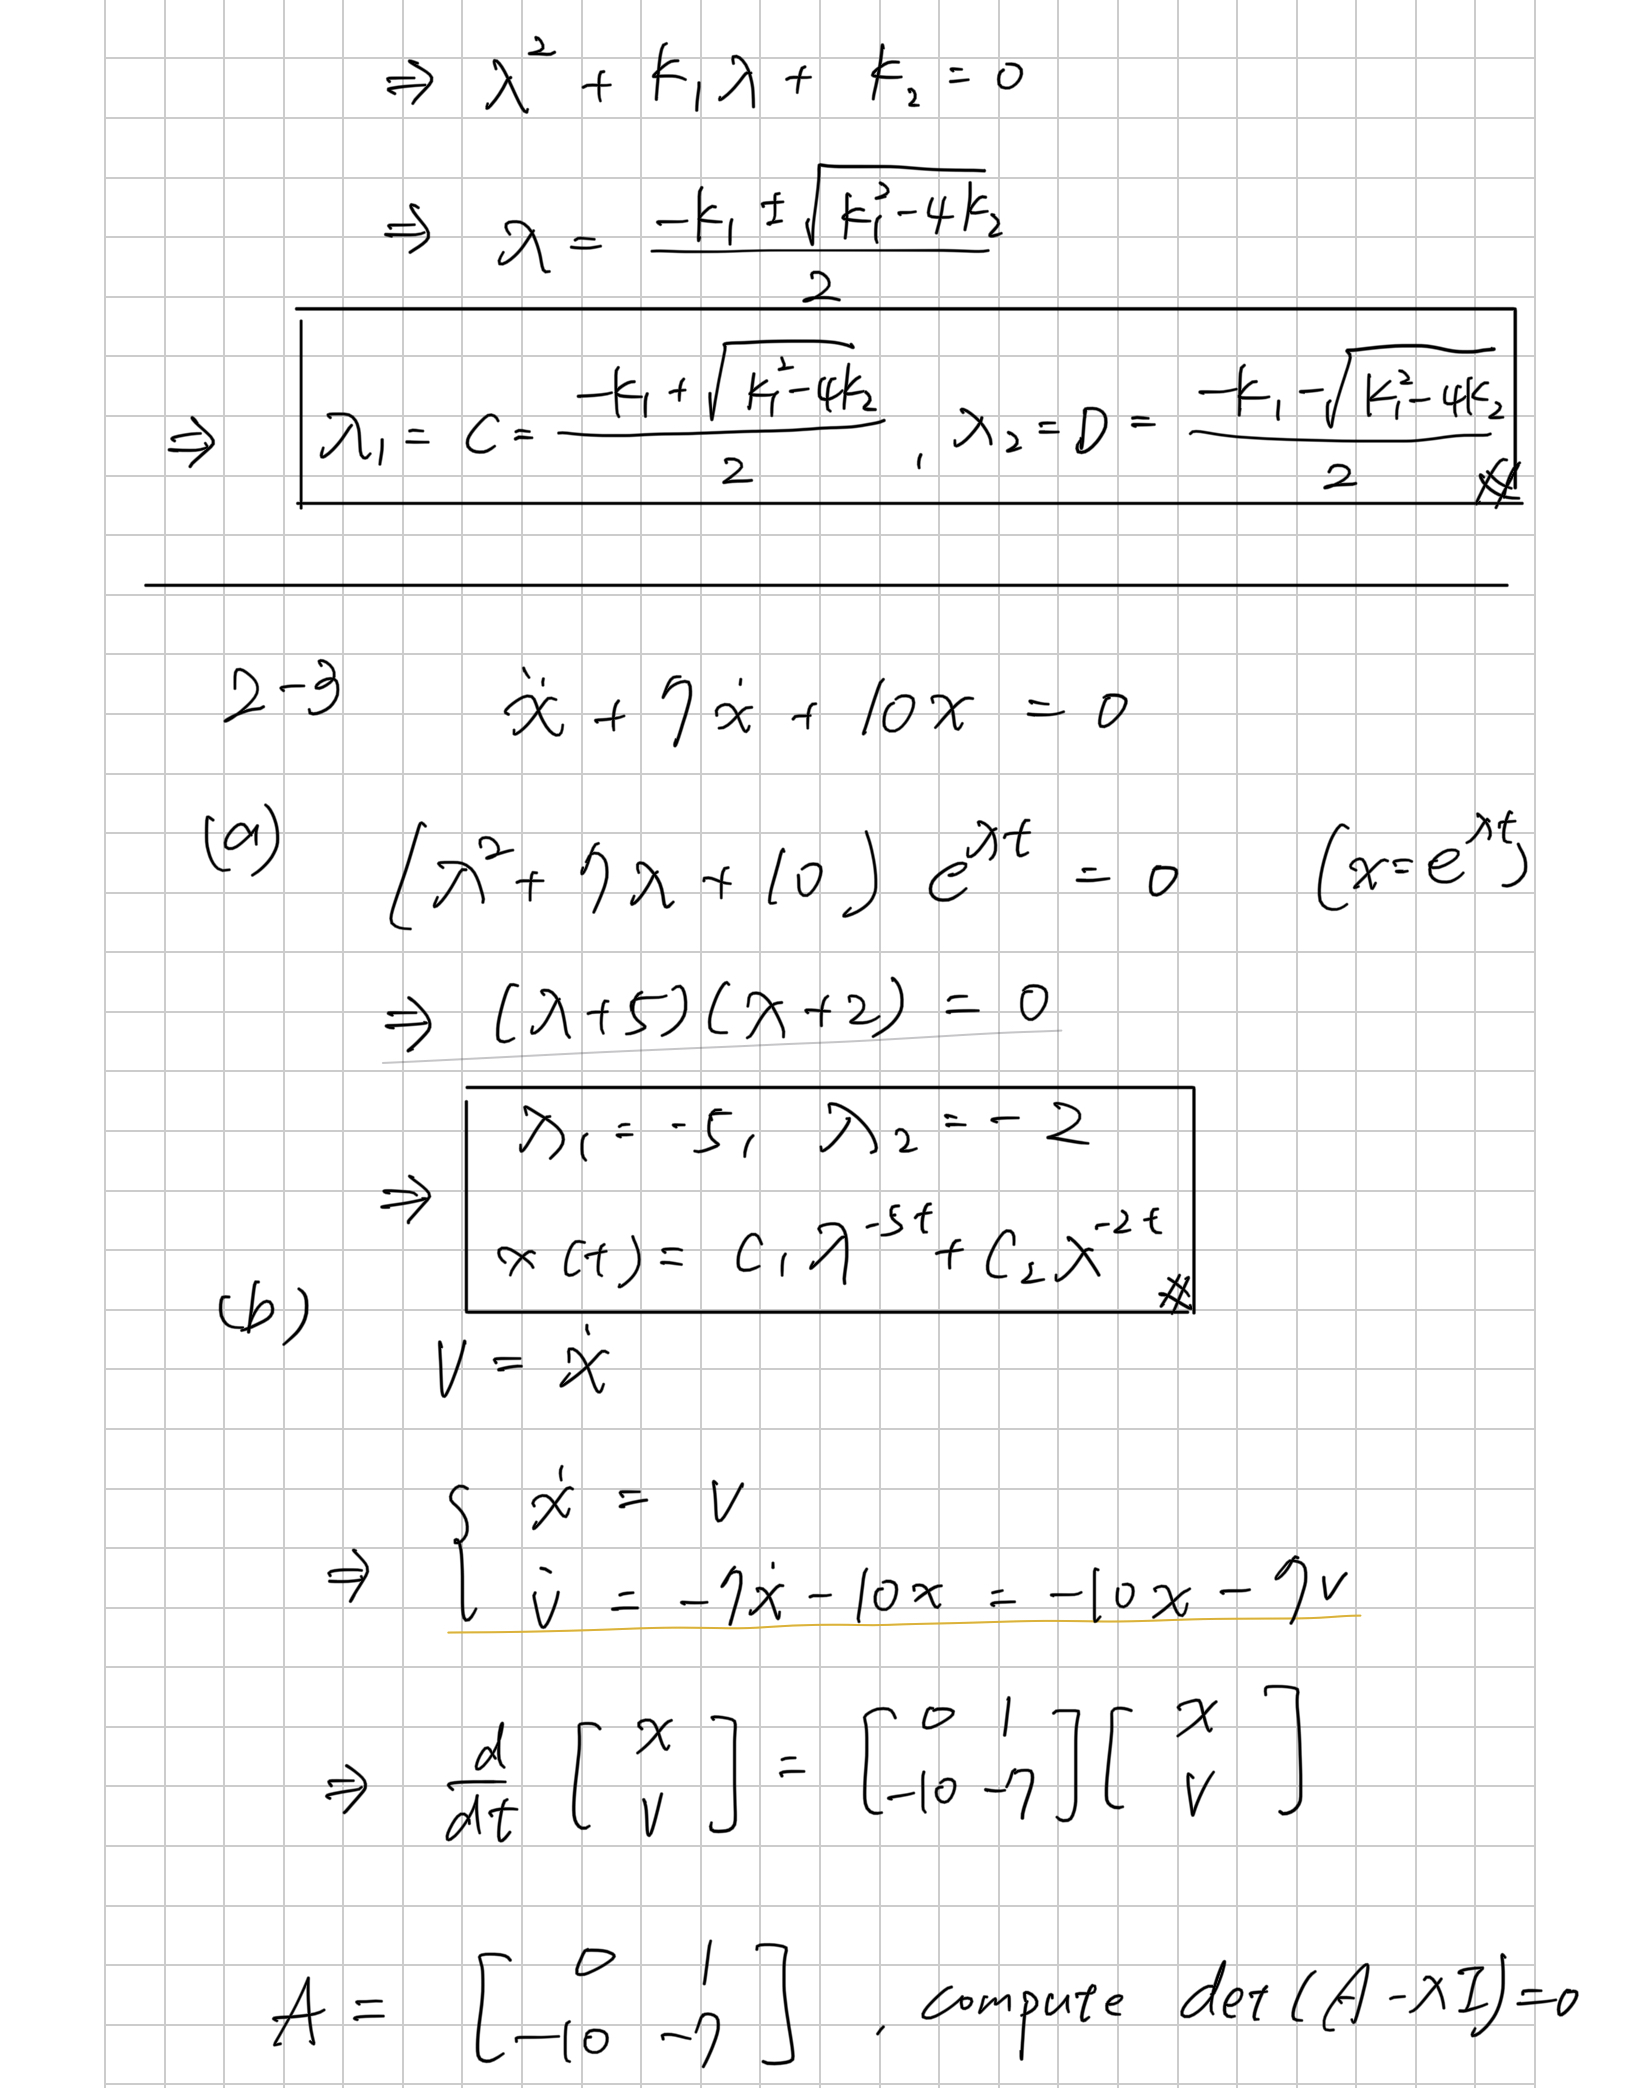 ⇒ λ² + k₁λ + k₂ = 0
⇒ λ = (-k₁ ± √(k₁² - 4k₂)) / 2
⇒ λ₁ = C = (-k₁ + √(k₁² - 4k₂)) / 2 , λ₂ = D = (-k₁ - √(k₁² - 4k₂)) / 2 #
2-3 ẍ + 7ẋ + 10x = 0
(a) (λ² + 7λ + 10) e^{λt} = 0 (x = e^{λt})
⇒ (λ+5)(λ+2) = 0
⇒ λ₁ = -5, λ₂ = -2
x(t) = C₁ λ^{-5t} + C₂ λ^{-2t} #
(b)
V = ẋ
⇒ { ẋ = v
v̇ = -7ẋ - 10x = -10x - 7v
⇒ d/dt [x; v] = [0 1; -10 -7] [x; v]
A = [0 1; -10 -7] , compute det(A - λI) = 0